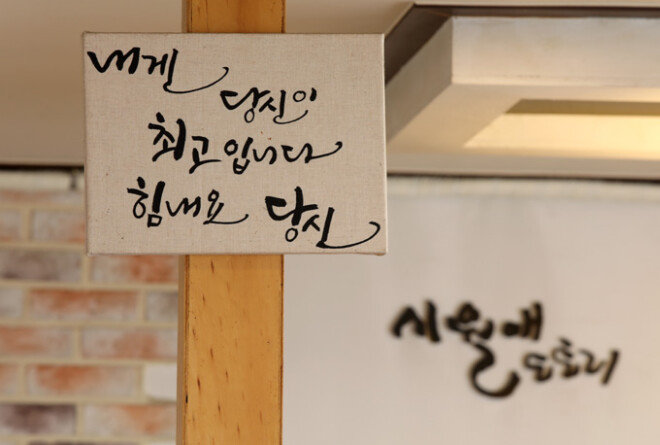 내게
당신이
최고입니다
힘내요 당신
시월애
도토리